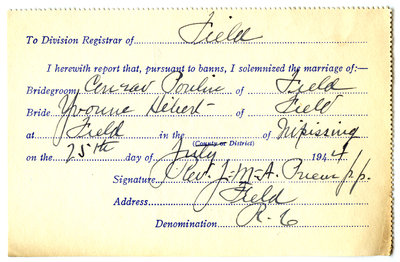 To Division Registrar of Field
I herewith report that, pursuant to banns, I solemnized the marriage of:—
Bridegroom Conrad Poulin of Field
Bride Yvonne Hébert of Field
at Field in the (County or District) of Nipissing
on the 25th day of July 1944
Signature Rev. J-M-A. Prieur p.p.
Address Field
Denomination R. C